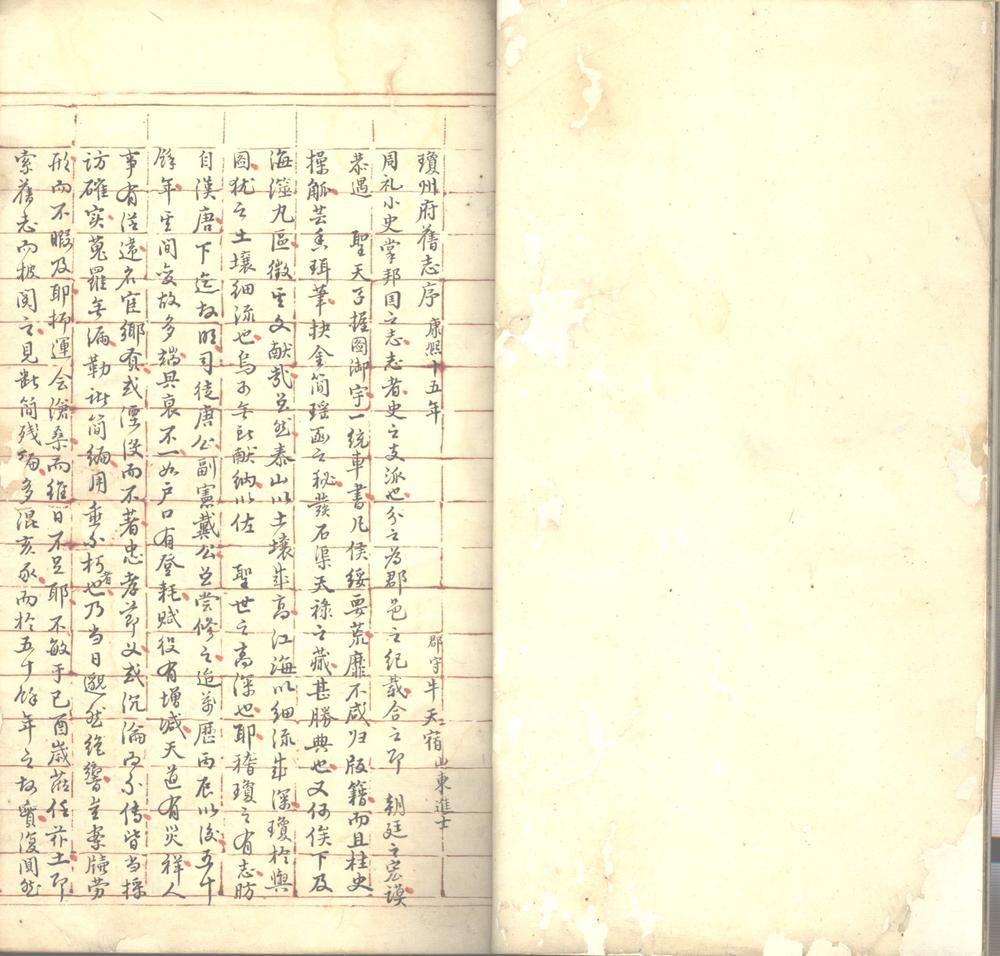 瓊州府舊志序 康熙十五年 郡守牛天宿山東進士
周礼小史掌邦国之志志者史之支派也分之為郡邑之紀載合之即 朝廷之宏謨
恭遇 聖天子握圖御宇一統車書凡侯綏要荒靡不咸归版籍而且柱史
操觚芸香珥筆抉金简瑶函之秘發石渠天禄之藏甚勝典也又何俟下及
海澨九區徵其文献哉苐然泰山以土壤成高江海以细流成深瓊於輿
圖犹之土壤细流也烏可無
献纳以佐 聖世之高深也耶稽瓊之有志昉
自漢唐下迄故明司徒唐公副憲戴公苐尝修之追萬歷丙辰以後五十
餘年其间变故多端興衰不一如户口有登耗赋役有增减天道有災祥人
事有送遠名宦鄉贤或湮没而不著忠孝节义或沉淪而不傳皆当採
訪確实蒐羅無漏勒
简编用垂不朽者也乃当日邈然绝響豈案牘劳
形而不暇及耶抑運会滄桑而维日不足耶不敏于己酉歲蒞任茲土即
索舊志而披阅之見断简残编多混亥豕而於五十餘年之故實復闃然